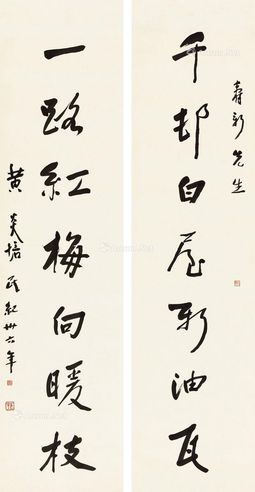 壽彭先生
千邨白屋彭油瓦
一路紅梅向暖枝
黃炎培 民紀卅六年